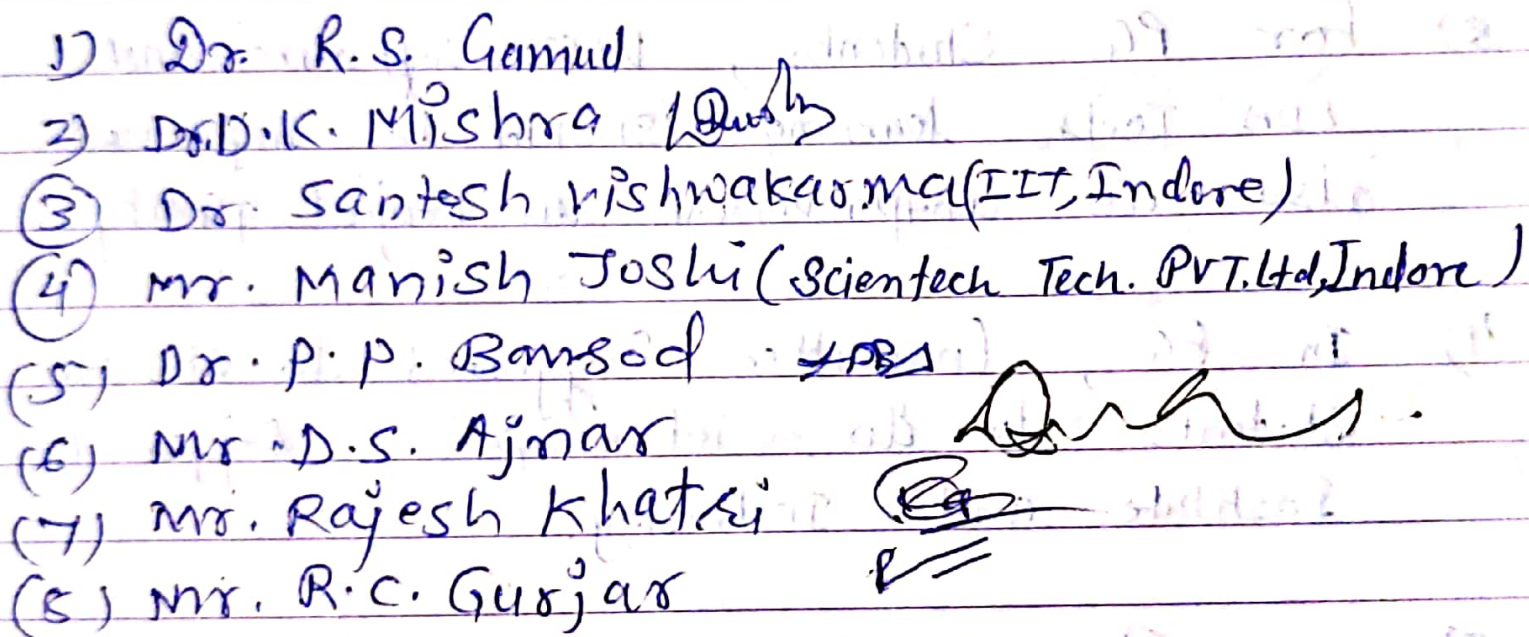 1) Dr. R.S. Gamud
2) Dr. D.K. Mishra
(3) Dr. Santosh vishwakarma (IIT, Indore)
(4) Mr. Manish Joshi (Scientech Tech. PVT. Ltd, Indore)
(5) Dr. P.P. Bansod
(6) Mr. D.S. Ajnar
(7) Mr. Rajesh Khatri
(8) Mr. R.C. Gurjar